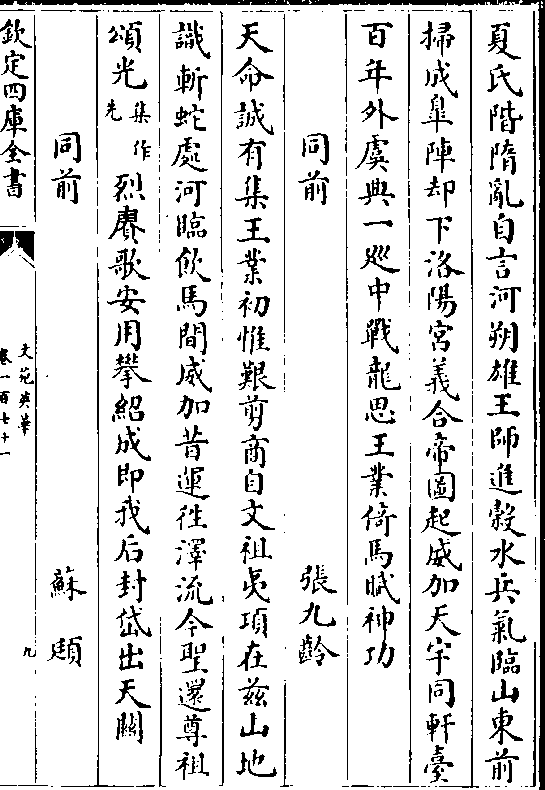 夏氏階隋亂自言河朔雄王師進穀水兵氣臨山東前
掃成臯陣却下洛陽宮義合帝圖起威加天宇同軒臺
百年外虞典一廵中戰龍思王業倚馬賦神功
同前 張九齡
天命誠有集王業初惟艱剪商自文祖夷項在兹山地
識斬蛇處河臨飲馬間威加昔運徃澤流今聖還尊祖
頌光集作先烈賡歌安用攀紹成即我后封岱出天關
同前 蘇頲
欽定四庫全書
文苑英華
卷一百七十一
九